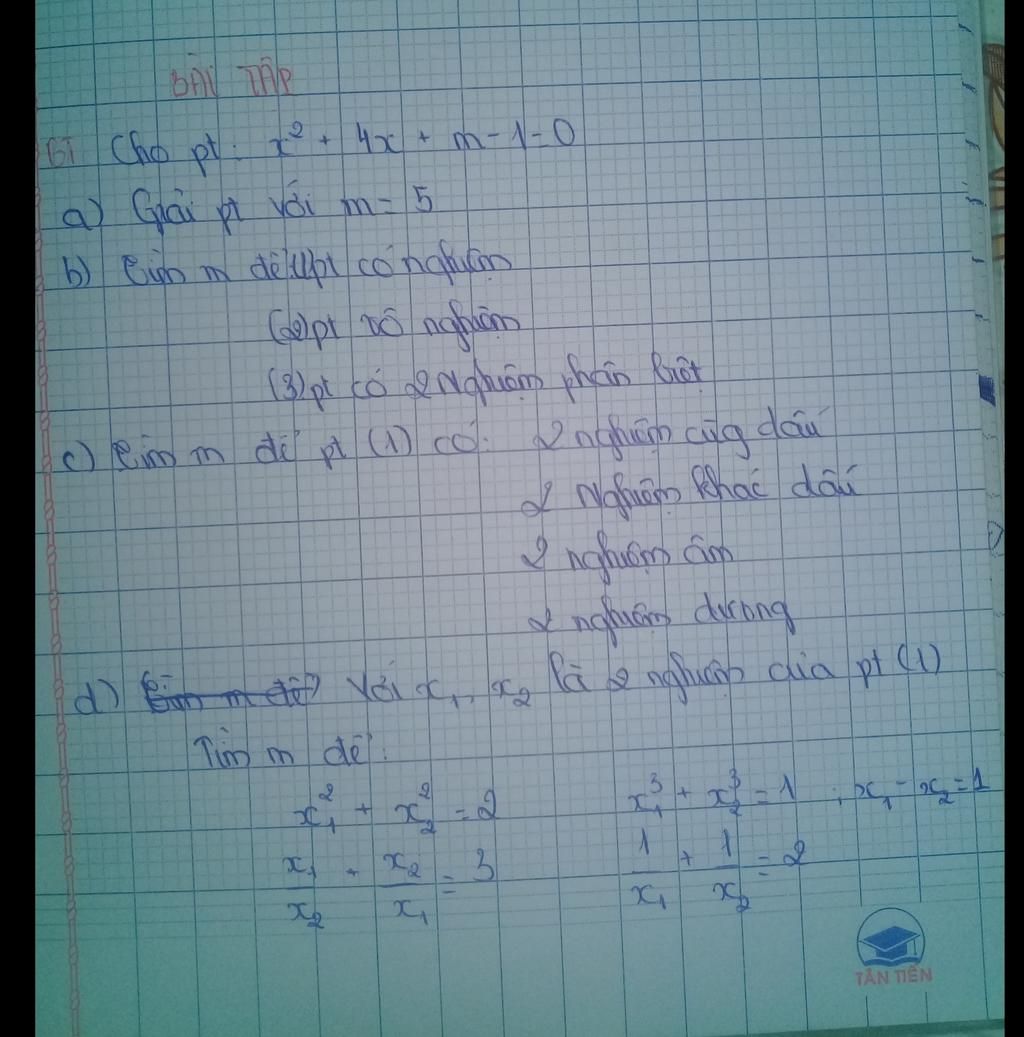 BÀI TẬP
B1 Cho pt: x² + 4x + m - 1 = 0
a) Giải pt với m = 5
b) Tìm m để (1) pt có nghiệm
(2) pt vô nghiệm
(3) pt có 2 nghiệm phân biệt
c) Tìm m để pt (1) có: 2 nghiệm cùng dấu
2 nghiệm khác dấu
2 nghiệm âm
2 nghiệm dương
d) Với x₁, x₂ là 2 nghiệm của pt (1)
Tìm m để:
x₁² + x₂² = 2 x₁³ + x₂³ = 1 ; x₁ - x₂ = 1
x₁/x₂ + x₂/x₁ = 3 1/x₁ + 1/x₂ = 2
TÂN TIẾN